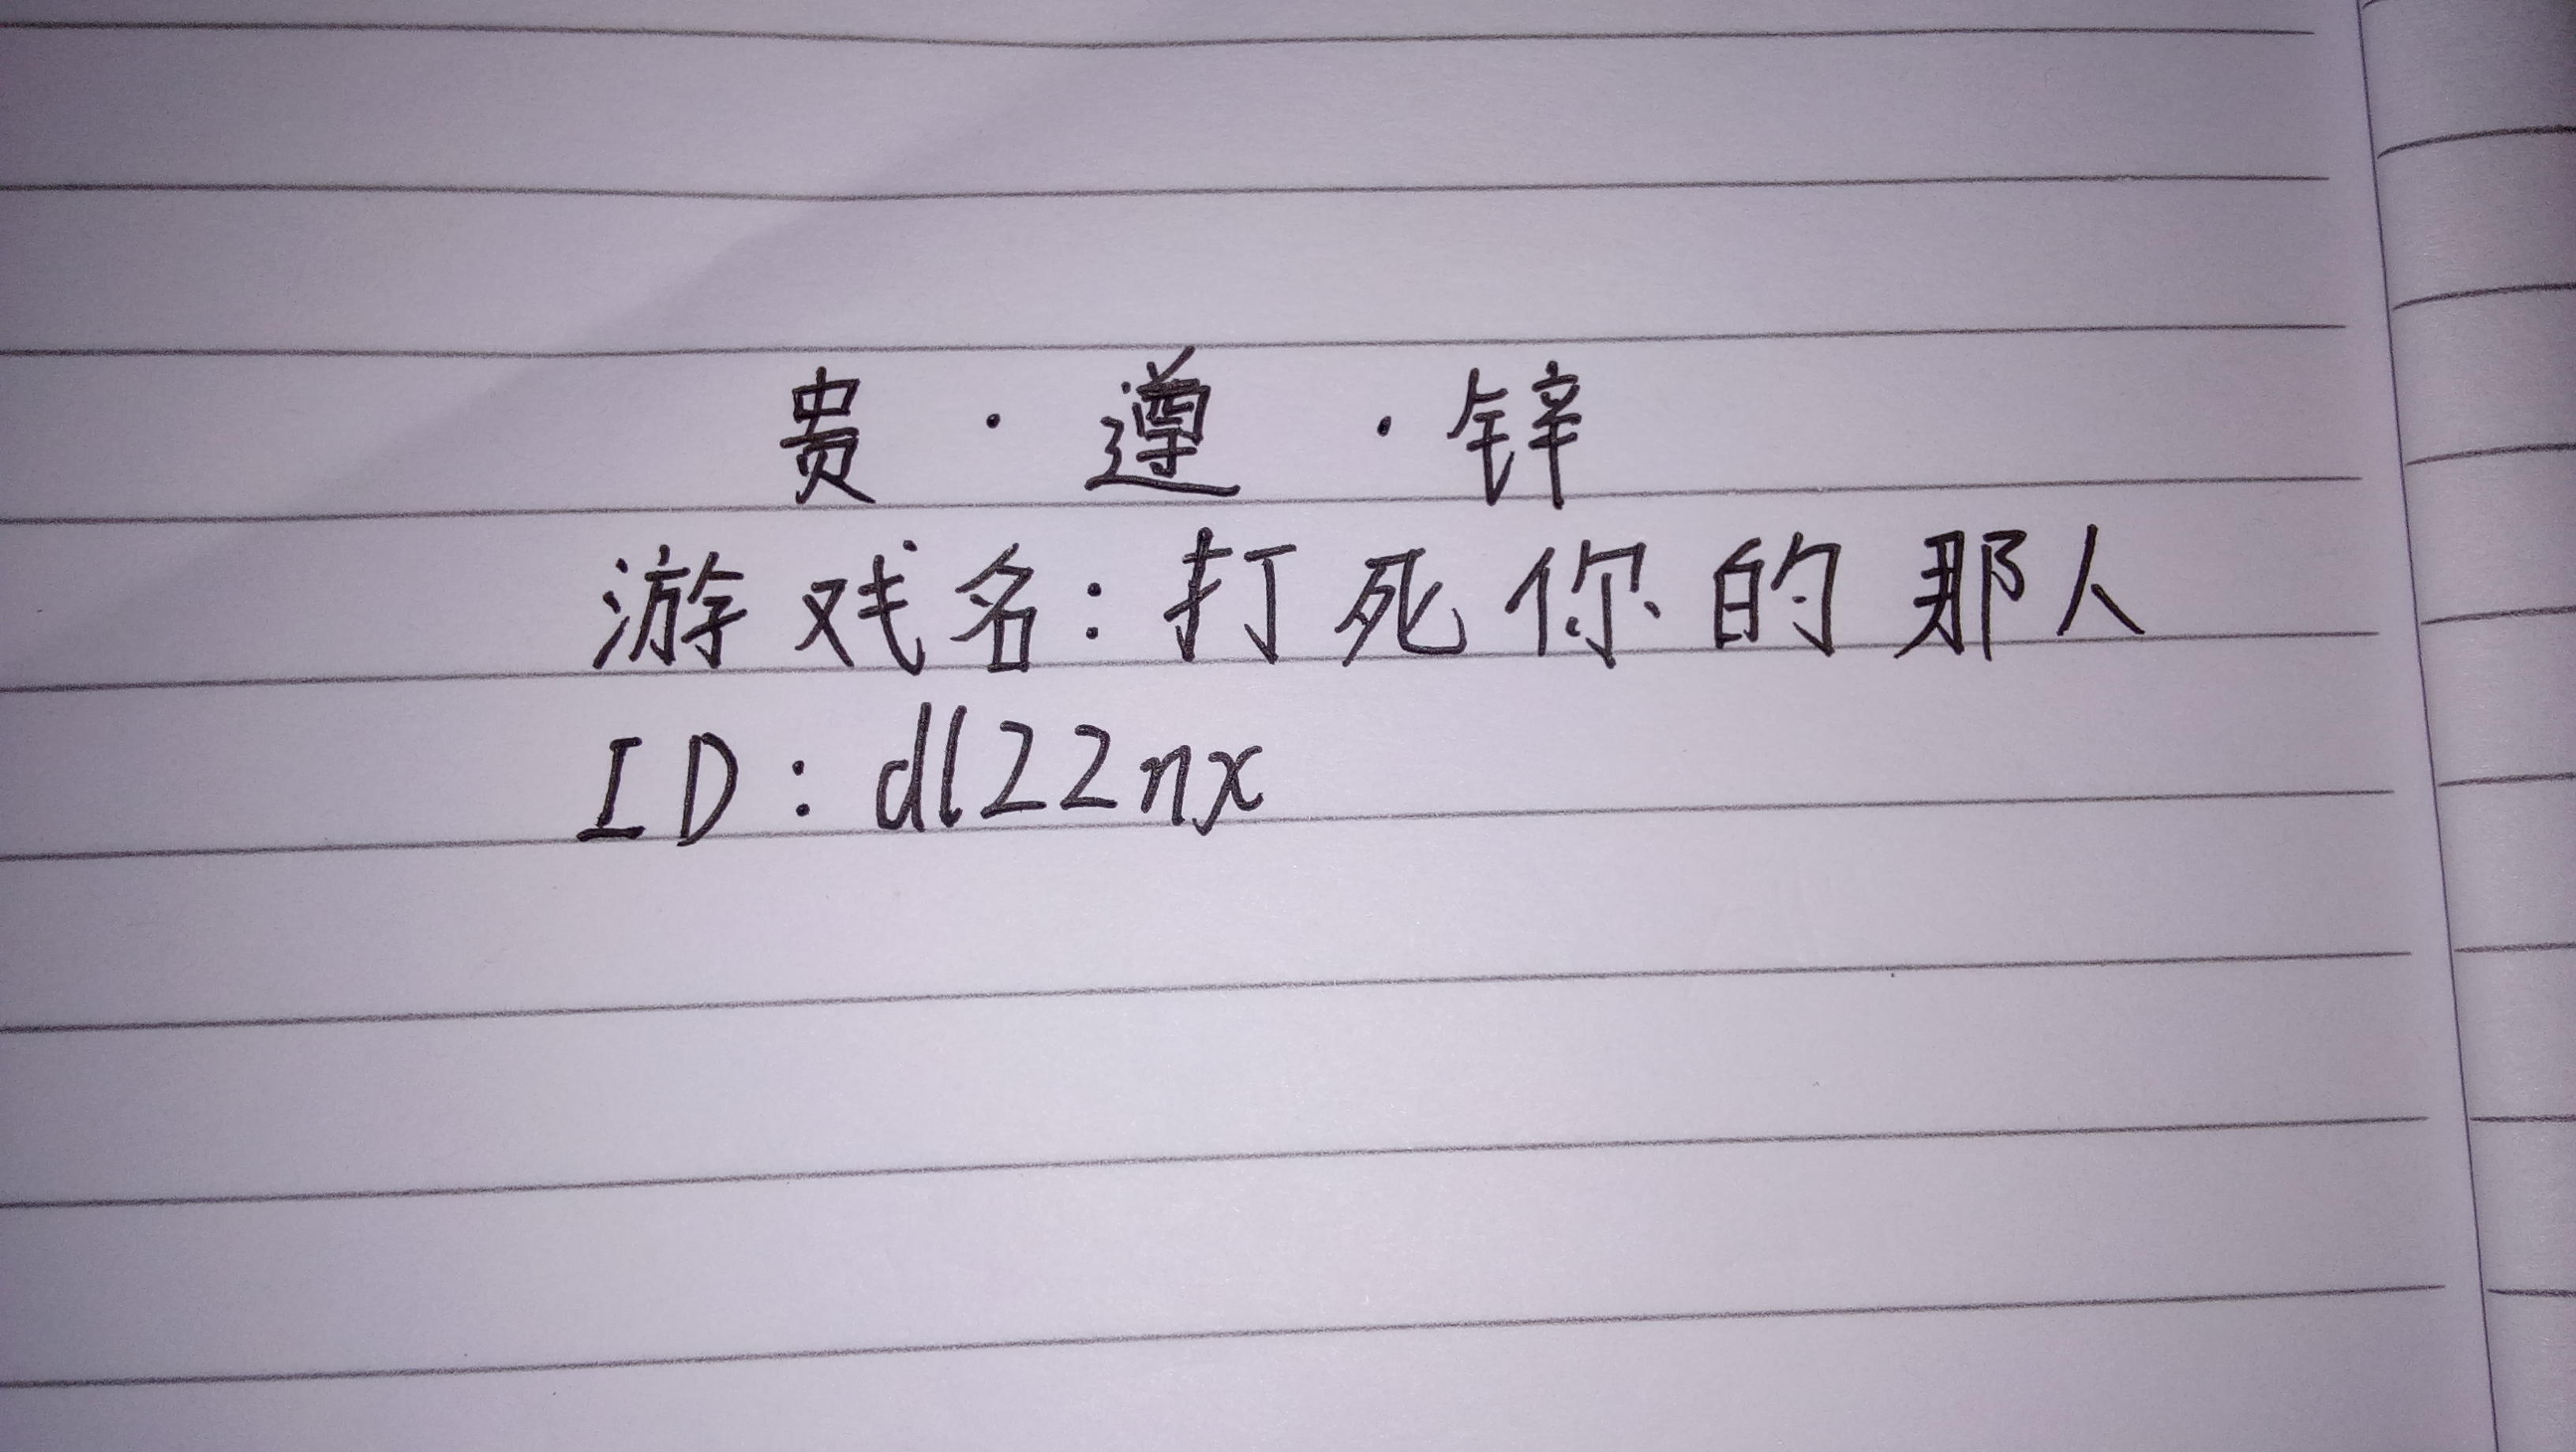 贵·遵·锌
游戏名:打死你的那人
ID:dl22nx